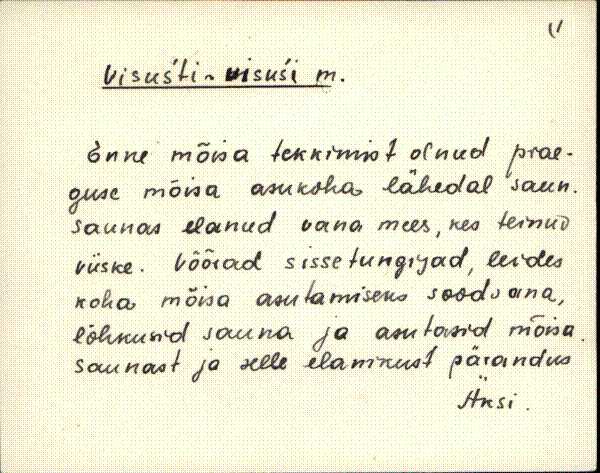 Visuśti ~ visuśi m.
Enne mõisa tekkimist olnud prae-
guse mõisa asukoha lähedal saun.
saunas elanud vana mees, kes teinud
viiske. Võõrad sissetungijad, leides
koha mõisa asutamiseks soodsana,
lõhkusid sauna ja asutasid mõisa.
saunast ja selle elanikust pärandus
Äksi.